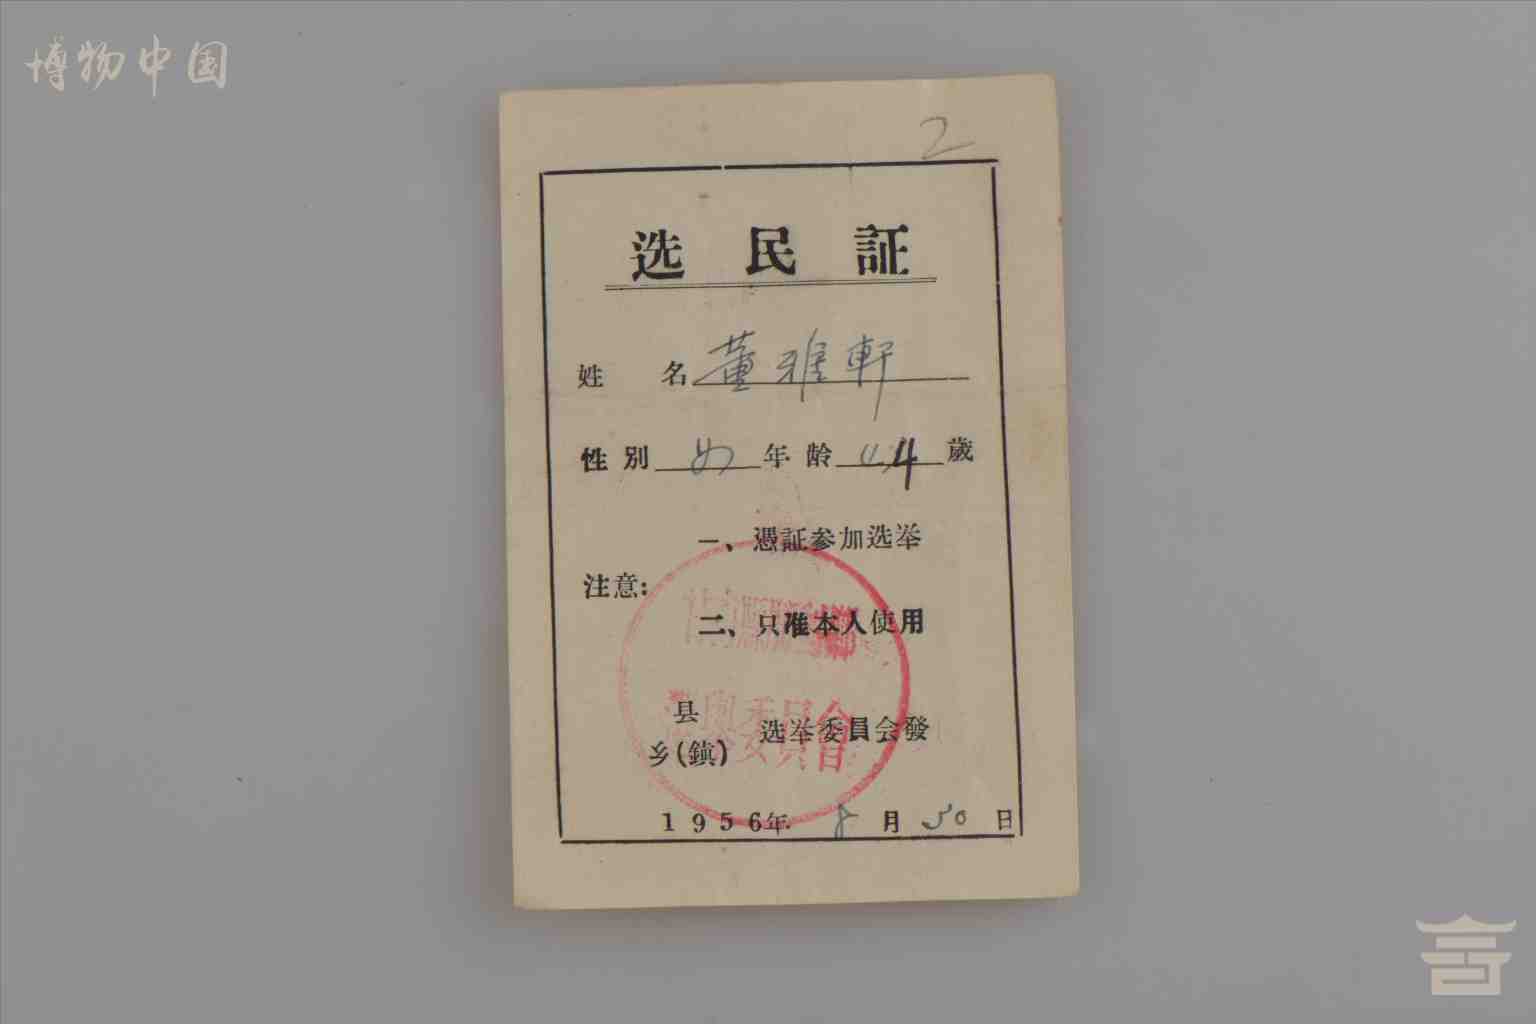 博物中国
2
选民証
姓 名 董雅軒
性别 女 年龄 44 歲
一、憑証参加选举
注意:
二、只准本人使用
委員會
县
乡(鎮) 选举委員会發
1956年 8月30日